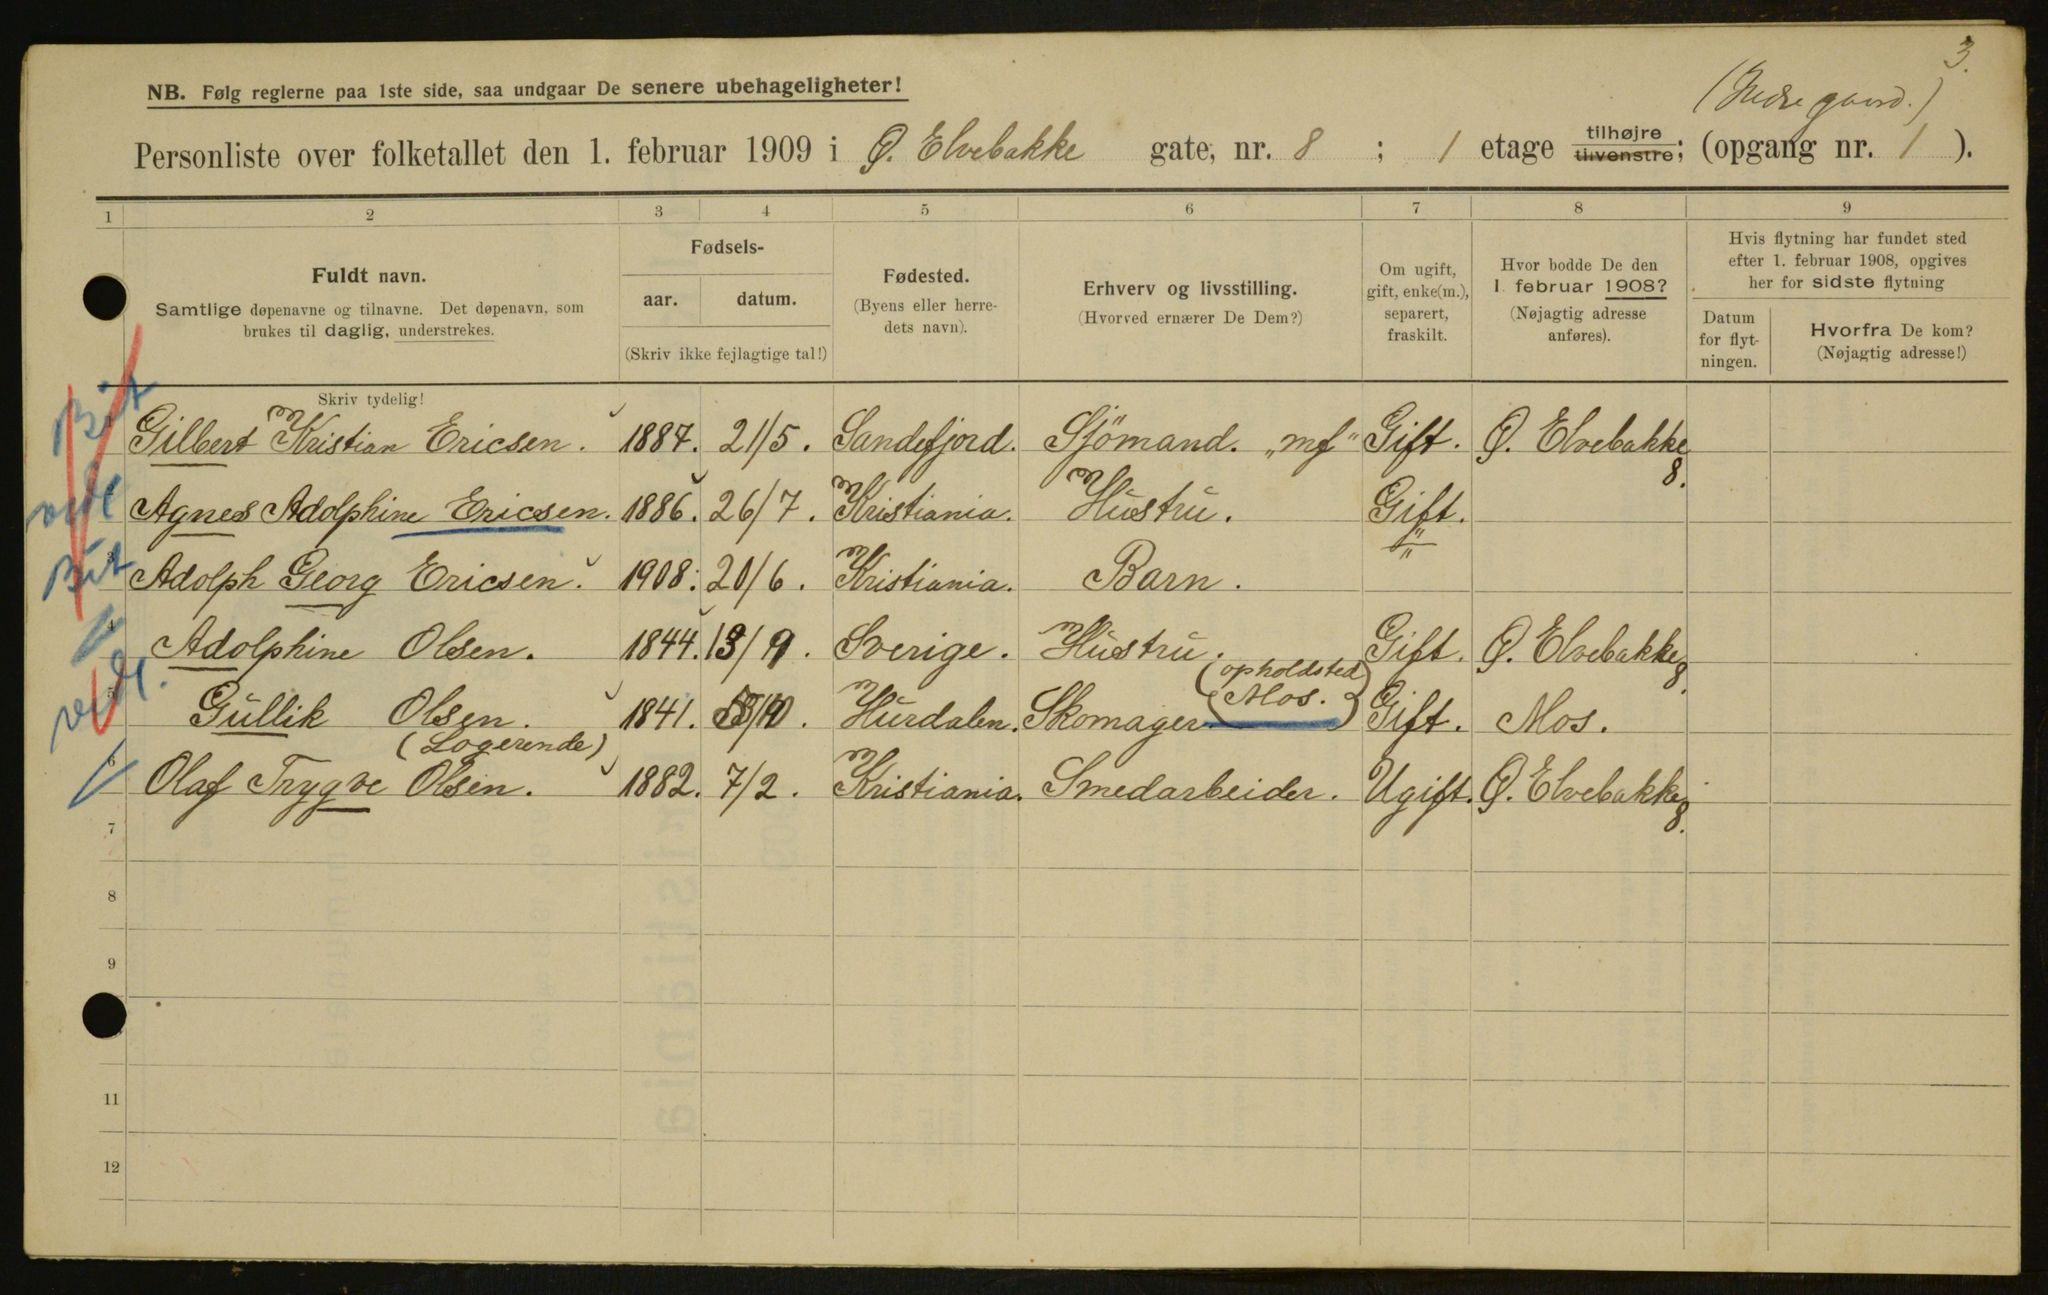 3.
(Indre gaard.)
NB. Følg reglerne paa 1ste side, saa undgaar De senere ubehageligheter!
Personliste over folketallet den 1. februar 1909 i Ø. Elvebakke gate, nr. 8 ; 1 etage tilhøjre tilvenstre; (opgang nr. 1 ).
1 2 3 4 5 6 7 8 9
Fuldt navn.
Samtlige døpenavne og tilnavne. Det døpenavn, som
brukes til daglig, understrekes.
Fødsels-
aar. datum.
(Skriv ikke fejlagtige tal!)
Fødested.
(Byens eller herre-
dets navn).
Erhverv og livsstilling.
(Hvorved ernærer De Dem?)
Om ugift,
gift, enke(m.),
separert,
fraskilt.
Hvor bodde De den
1. februar 1908?
(Nøjagtig adresse
anføres).
Hvis flytning har fundet sted
efter 1. februar 1908, opgives
her for sidste flytning
Datum
for flyt-
ningen.
Hvorfra De kom?
(Nøjagtig adresse!)
Skriv tydelig!
Gilbert Kristian Ericsen. 1887. 21/5. Sandefjord. Sjömand. „mf" Gift. Ø. Elvebakke 8.
Agnes Adolphine Ericsen. 1886. 26/7. Kristiania. Hustru. Gift.
3 Adolph Georg Ericsen. 1908. 20/6. Kristiania. Barn. "
4 Adolphine Olsen. 1844. Sverige. Hustru. Gift. Ø. Elvebakke 8.
5 Gullik Olsen. 1841. Hurdalen. Skomager. (opholdsted Mos.) Gift. Mos.
(Logerende)
6 Olaf Trygve Olsen. 1882. 7/2. Kristiania. Smedarbeider. Ugift. Ø. Elvebakke 8.
7
8
9
11
12